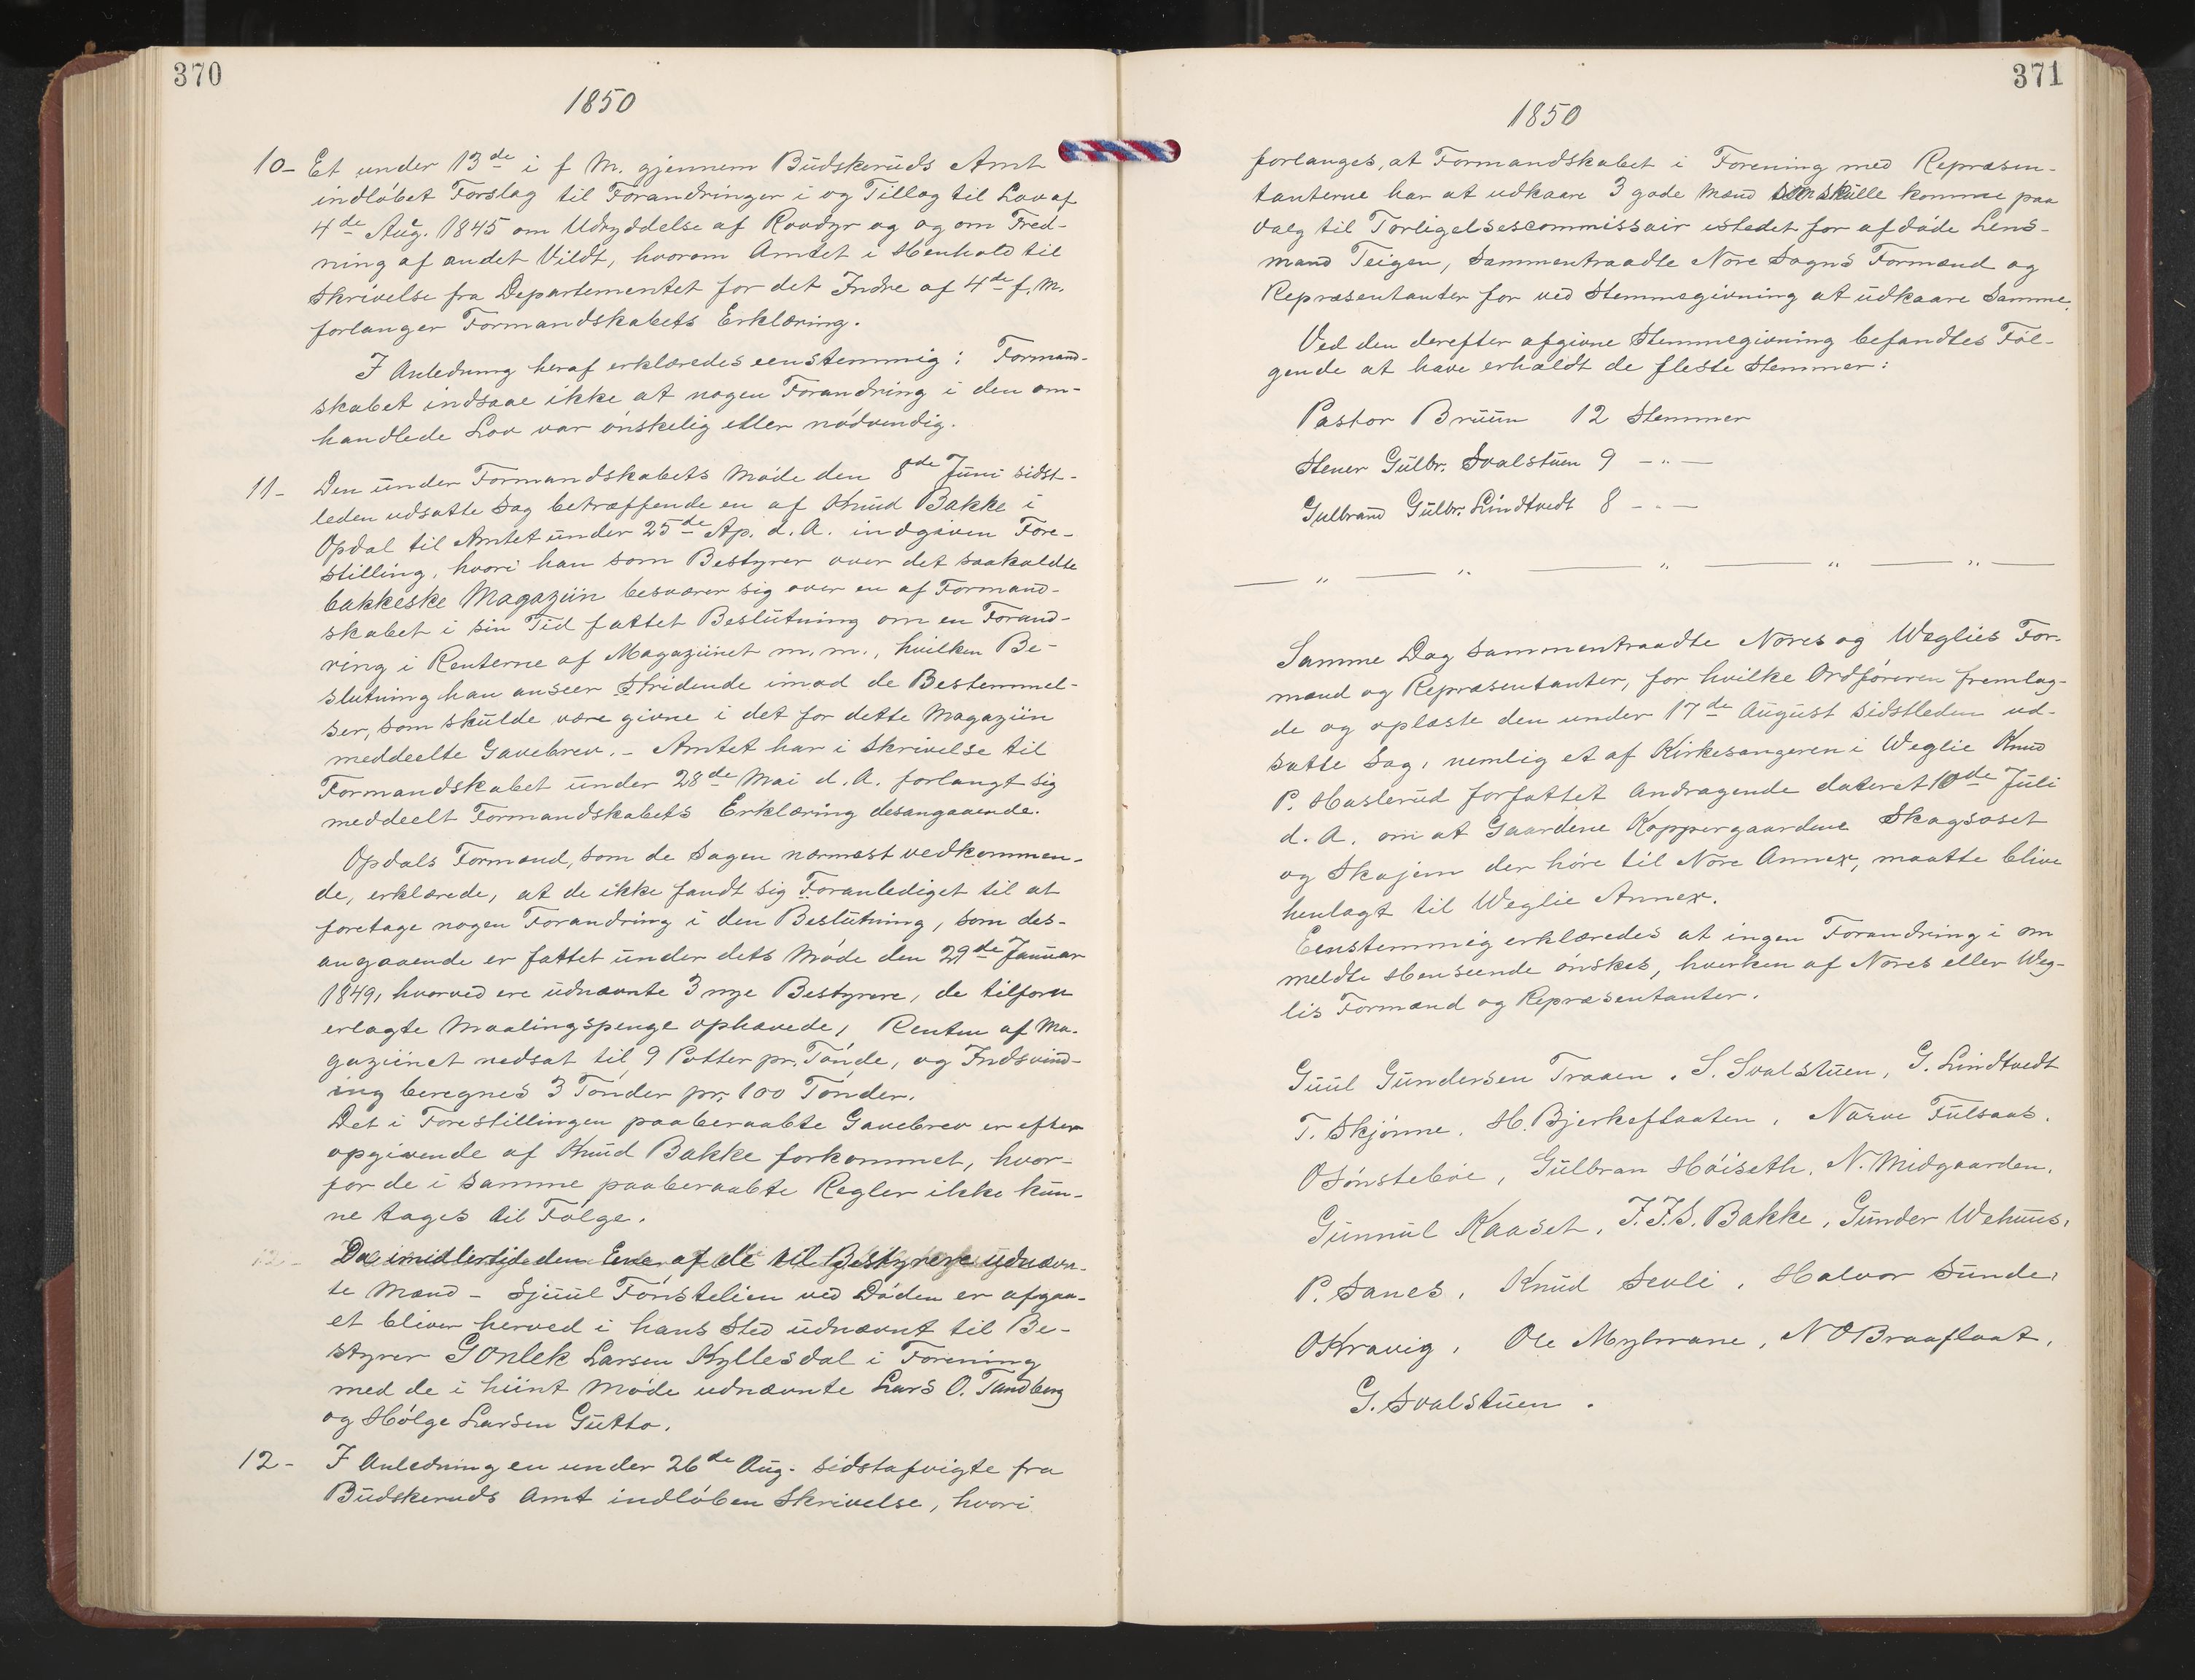 370
1850
10- Et under 13de i f M. gjennem Budskeruds Amt
indløbet Forslag til Forandringer i og Tillæg til Lov af
4de Aug. 1845 om Udryddelse af Rovdyr og og om Fred-
ning af andet Vildt, hvorom Amtet i Henhold til
Skrivelse fra Departementet for det Indre af 4de f. M.
forlanger Formandskabets Erklæring.
I Anledning heraf erklæredes eenstemmig: Formand-
skabet indsaae ikke at nogen Forandring i den om-
handlede Lov var ønskelig eller nødvendig.
11- Den under Formandskabets Møde den 8de Juni sidst-
leden udsatte Sag betræffende en af Knud Bakke i
Opdal til Amtet under 25de Ap. d. A. indgiven Fore-
stilling, hvori han som Bestyrer over det saakaldte
bakkeske Magaziin besværer sig over en af Formand-
skabet i sin Tid fattet Beslutning om en Forand-
ring i Renterne af Magazinet m. m., hvilken Be-
slutning han anseer stridende imod de Bestemmel-
ser, som skulde være givne i det for dette Magaziin
meddeelte Gavebrev. - Amtet har i Skrivelse til
Formandskabet under 28de Mai d. A. forlangt sig
meddeelt Formandskabets Erklæring desangaaende.
Opdals Formænd, som de Sagen nærmest vedkommen-
de, erklærede, at de ikke fandt sig Foranlediget til at
foretage nogen Forandring i den Beslutning, som des-
angaaende er fattet under dets Møde den 29de Januar
1849, hvorved ere udnævnte 3 nye Bestyrere, de tilforn
erlagte Maalingspenge ophævede, Renten af Ma-
gaziinet nedsat til 9 Potter pr. Tønde, og Indsvind-
ing beregnes 3 Tønder pr. 100 Tønder.
Det i Forestillingen paaberaabte Gavebrev er efter
opgivende af Knud Bakke forkommet, hvor-
for de i samme paaberaabte Regler ikke kun-
ne tages til Følge.
Da imidlertid den Ene af de til Bestyrere udnævn-
te Mænd - Sjuul Fønstelien ved Døden er afgaa-
et bliver herved i hans Sted udnævnt til Be-
styrer Gonlek Larsen Kyllesdal i Forening
med de i hiint Møde udnævnte Lars O. Tandberg
og Hølge Larsen Gutto.
12- I Anledning en under 26de Aug. sidstafvigte fra
Budskeruds Amt indløben Skrivelse, hvori
371
1850
forlanges, at Formandskabet i Forening med Repræsen-
tanterne har at udkaare 3 gode Mænd som skulle komme paa
Valg til Forligelsescommissair istedet for afdøde Lens-
mand Teigen, Sammentraadte Nore Sogns Formænd og
Repræsentanter for ved Stemmegivning at udkaare Samme.
Ved den derefter afgivne Stemmegivning befandtes Føl-
gende at have erholdt de fleste Stemmer:
Pastor Bruun 12 Stemmer
Stener Gulbr. Svalstuen 9 - " -
Gulbrand Gulbr. Lindtvedt 8 - " -
— " — " — " — " — " —
Samme Dag Sammentraadte Nores og Weglies For-
mænd og Repræsentanter, for hvilke Ordføreren fremlag-
de og oplæste den under 17de August sidstleden ud-
satte Sag, nemlig et af Kirkesangeren i Weglie Knud
P. Haslerud forfattet Andragende dateret 10de Juli
d. A. om at Gaardene Koppergaardene Skagsoset
og Skajem der høre til Nore Annex, maatte blive
henlagt til Weglie Annex.
Eenstemmig erklæredes at ingen Forandring i om
meldte Henseende ønskes, hverken af Nores eller Weg-
lis Formænd og Repræsentanter.
Guul Gundersen Traaen. S. Svalstuen, G. Lindtvedt
T. Skjønne. H. Bjerkeflaaten, Narve Fulsaas.
O Sønstebøe, Gulbran Høiseth, N. Midgaarden.
Gunnul Kaaset, J. J. S. Bakke, Gunder Wehuus,
P. Sanes, Knud Sevli, Halvor Sunde,
O Kravig, Ole Myhrane, N O Braaflaat,
G. Svalstuen.